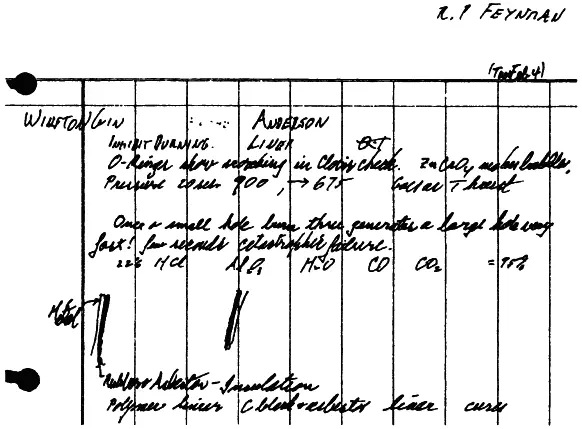 R. P FEYNMAN
(Tues Feb. 4)
WINSTON GIN ANDERSON
INHIBIT BURNING. LINER
O-Rings show scorching in Clovis check. ZnCrO4 makes bubbles.
Pressure comes 900, → 675
Once a small hole burns thru generates a large hole very
fast! few seconds catastrophic failure.
22% HCl Al2O3 H2O CO CO2 = 95%
Metal
Rubber + Asbestos - Insulation
Polymer liner C black + asbestos liner cures